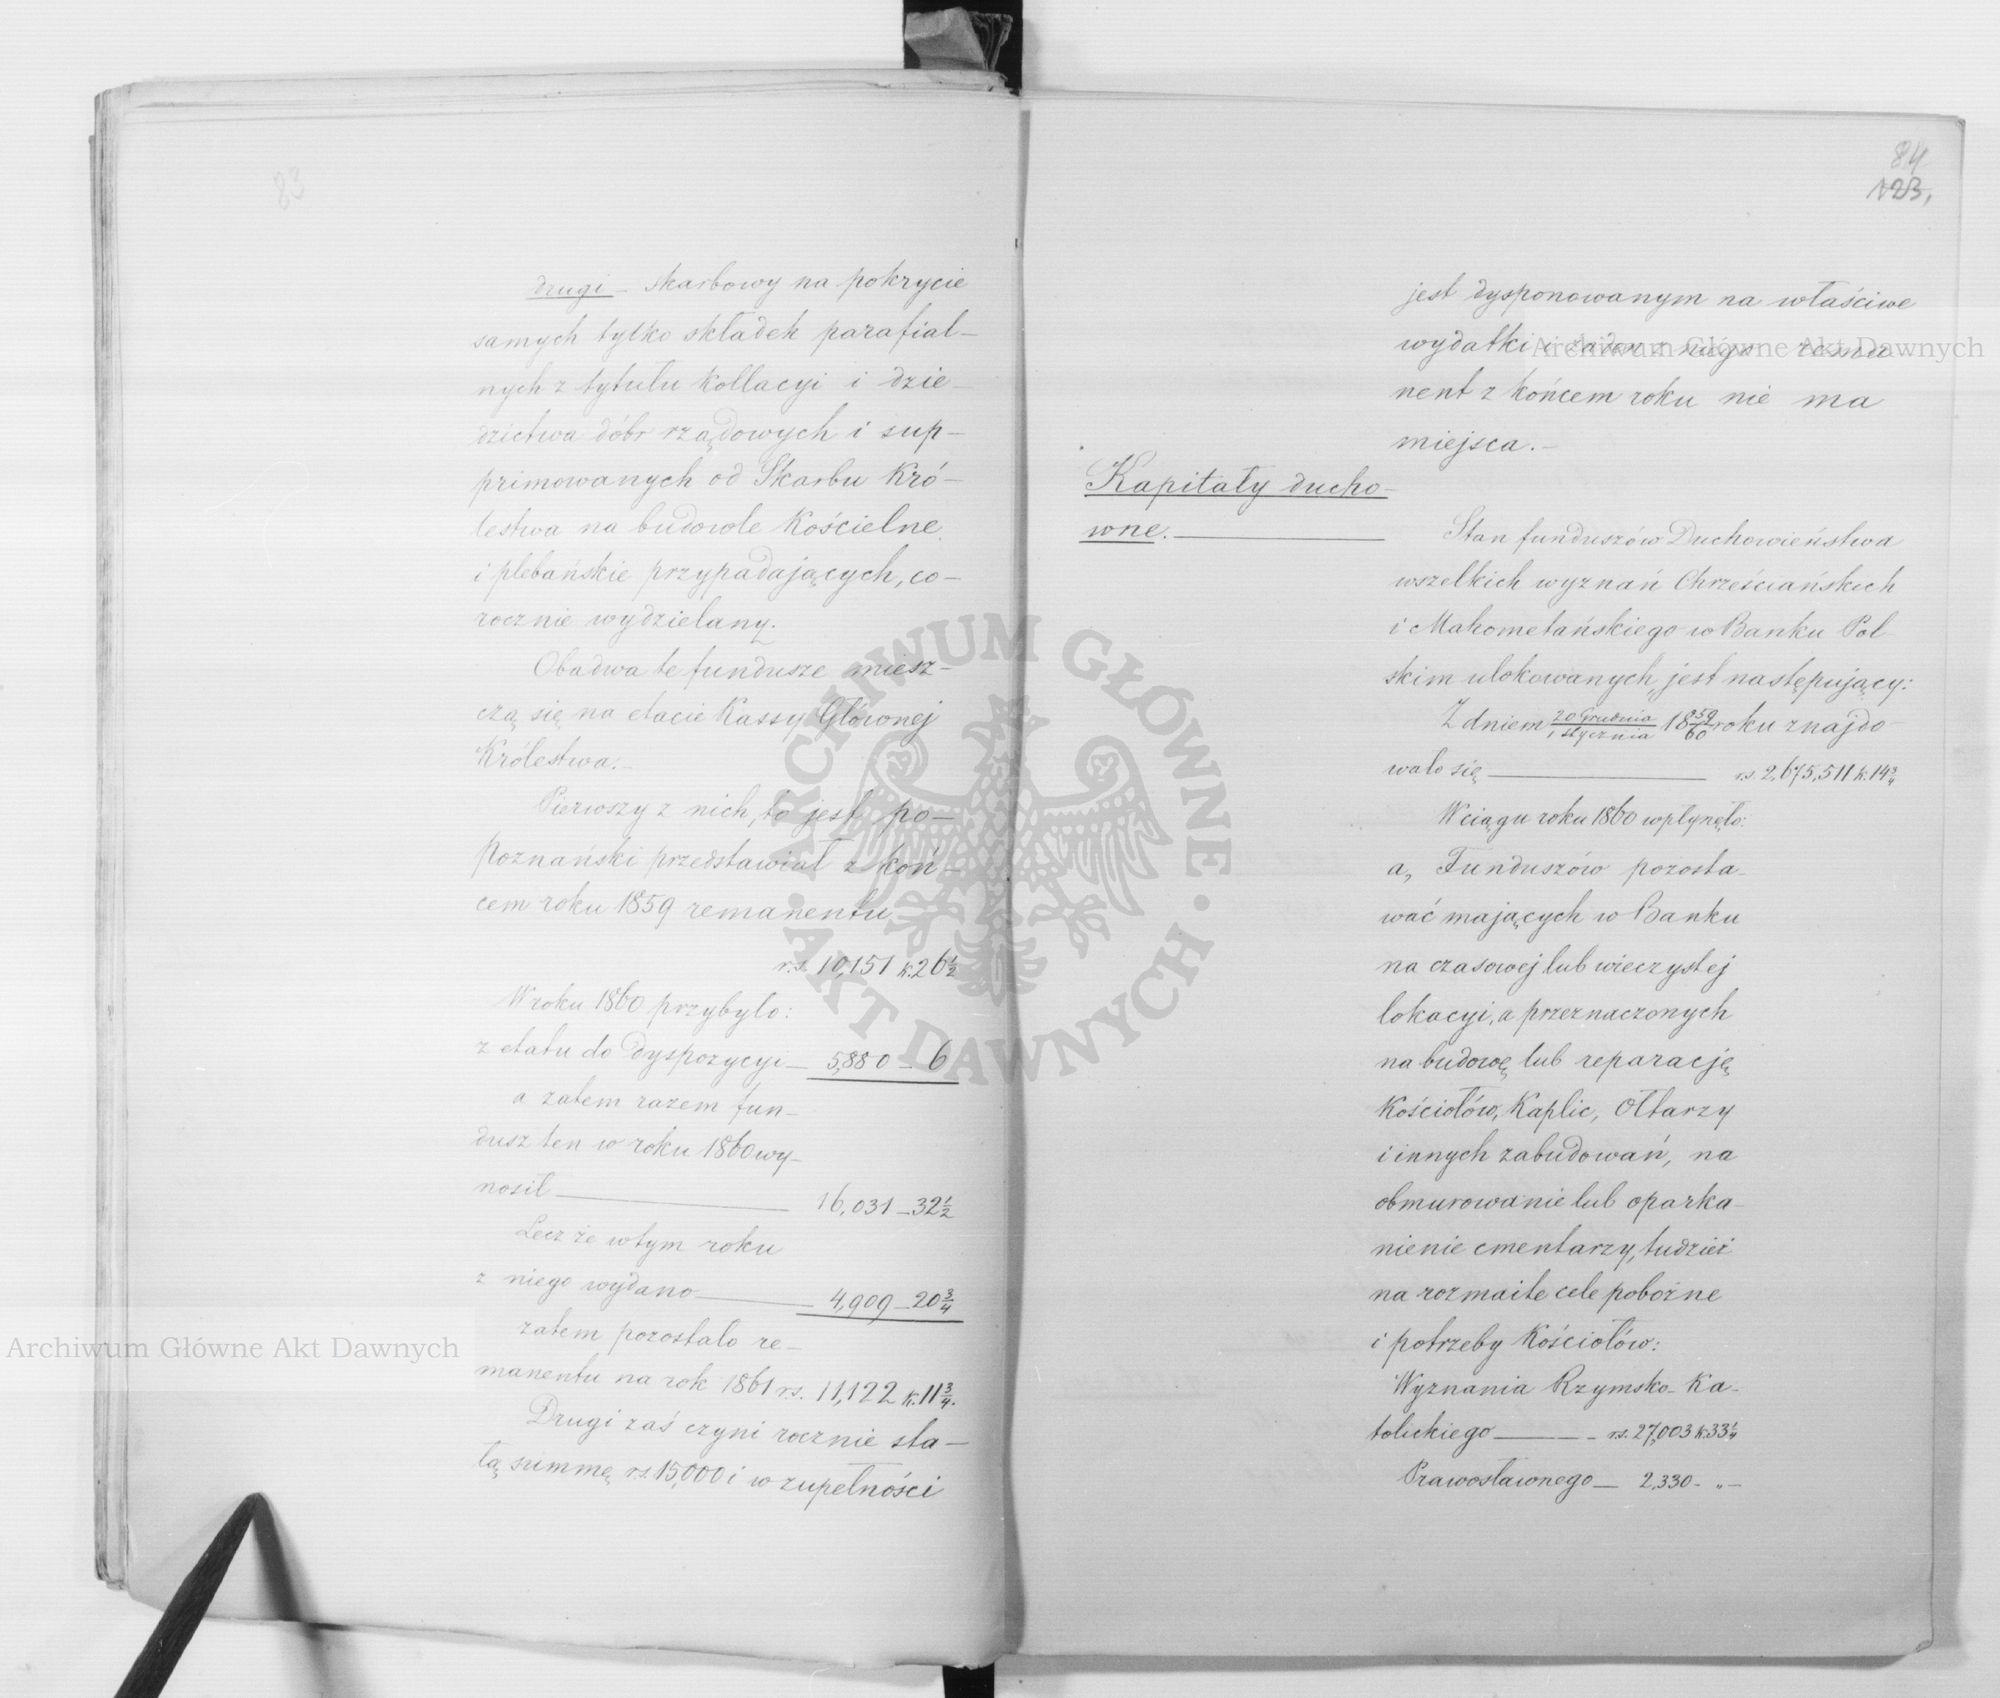 83
drugi – skarbowy na pokrycie
samych tylko składek parafial–
nych z tytułu kollacyi i dzie–
dzictwa dóbr rządowych i sup–
primowanych od Skarbu Kró–
lestwa na budowle Kościelne
i plebańskie przypadających, co–
rocznie wydzielany.
Obadwa te fundusze miesz–
czą się na etacie Kassy Głównej
Królestwa.–
Pierwszy z nich, to jest po–
poznański przedstawiał z koń–
cem roku 1859 remanentu
r.s. 10,151 k. 26½
W roku 1860 przybyło:
z etatu do dyspozycyi – 5,880 – 6
a zatem razem fun–
dusz ten w roku 1860 wy–
nosił 16,031 – 32½
Lecz że w tym roku
z niego wydano 4,909 – 20¾
zatem pozostało re–
manentu na rok 1861 rs. 11,122 k. 11¾.
Drugi zaś czyni rocznie sta–
łą summę rs. 15,000 i w zupełności
84
123,
jest dysponowanym na właściwe
wydatki i żaden z niego rema
nent z końcem roku nie ma
miejsca.–
Kapitały ducho–
wne.
Stan funduszów Duchowieństwa
wszelkich wyznań Chrześciańskich
i Mahometańskiego w Banku Pol–
skim ulokowanych, jest następujący:
Z dniem 20 Grudnia/1 stycznia 18 59/60 roku znajdo–
wało się rs. 2,675,511 k. 14¾
W ciągu roku 1860 wpłynęło:
a, Funduszów pozosta–
wać mających w Banku
na czasowej lub wieczystej
lokacyi, a przeznaczonych
na budowę lub reparację
Kościołów, Kaplic, Ołtarzy
i innych zabudowań, na
obmurowanie lub oparka–
nienie cmentarzy, tudzież
na rozmaite cele pobożne
i potrzeby Kościołów:
Wyznania Rzymsko–Ka–
tolickiego – rs. 27,003 k. 33¼
Prawosławnego – 2,330 – „ –
Archiwum Główne Akt Dawnych
Archiwum Główne Akt Dawnych
ARCHIWUM GŁÓWNE
AKT DAWNYCH